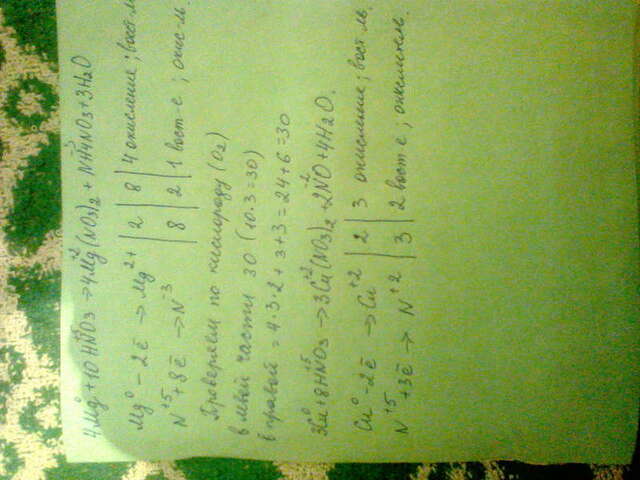 4Mg⁰ + 10HN⁺⁵O3 → 4Mg⁺²(NO3)2 + N⁻³H4NO3 + 3H2O
Mg⁰ - 2ē → Mg²⁺ | 2 | 8 | 4 окисление; вост-ль
N⁺⁵ + 8ē → N⁻³ | 8 | 2 | 1 вост-е ; окис-ль.
Проверяем по кислороду (O2)
в левой части 30 (10·3=30)
в правой = 4·3·2 + 3+3 = 24+6 = 30
3Cu⁰ + 8HN⁺⁵O3 → 3Cu⁺²(NO3)2 + 2NO⁻² + 4H2O.
Cu⁰ - 2ē → Cu⁺² | 2 | 3 окисление; вост-ль.
N⁺⁵ + 3ē → N⁺² | 3 | 2 вост-е ; окислитель.